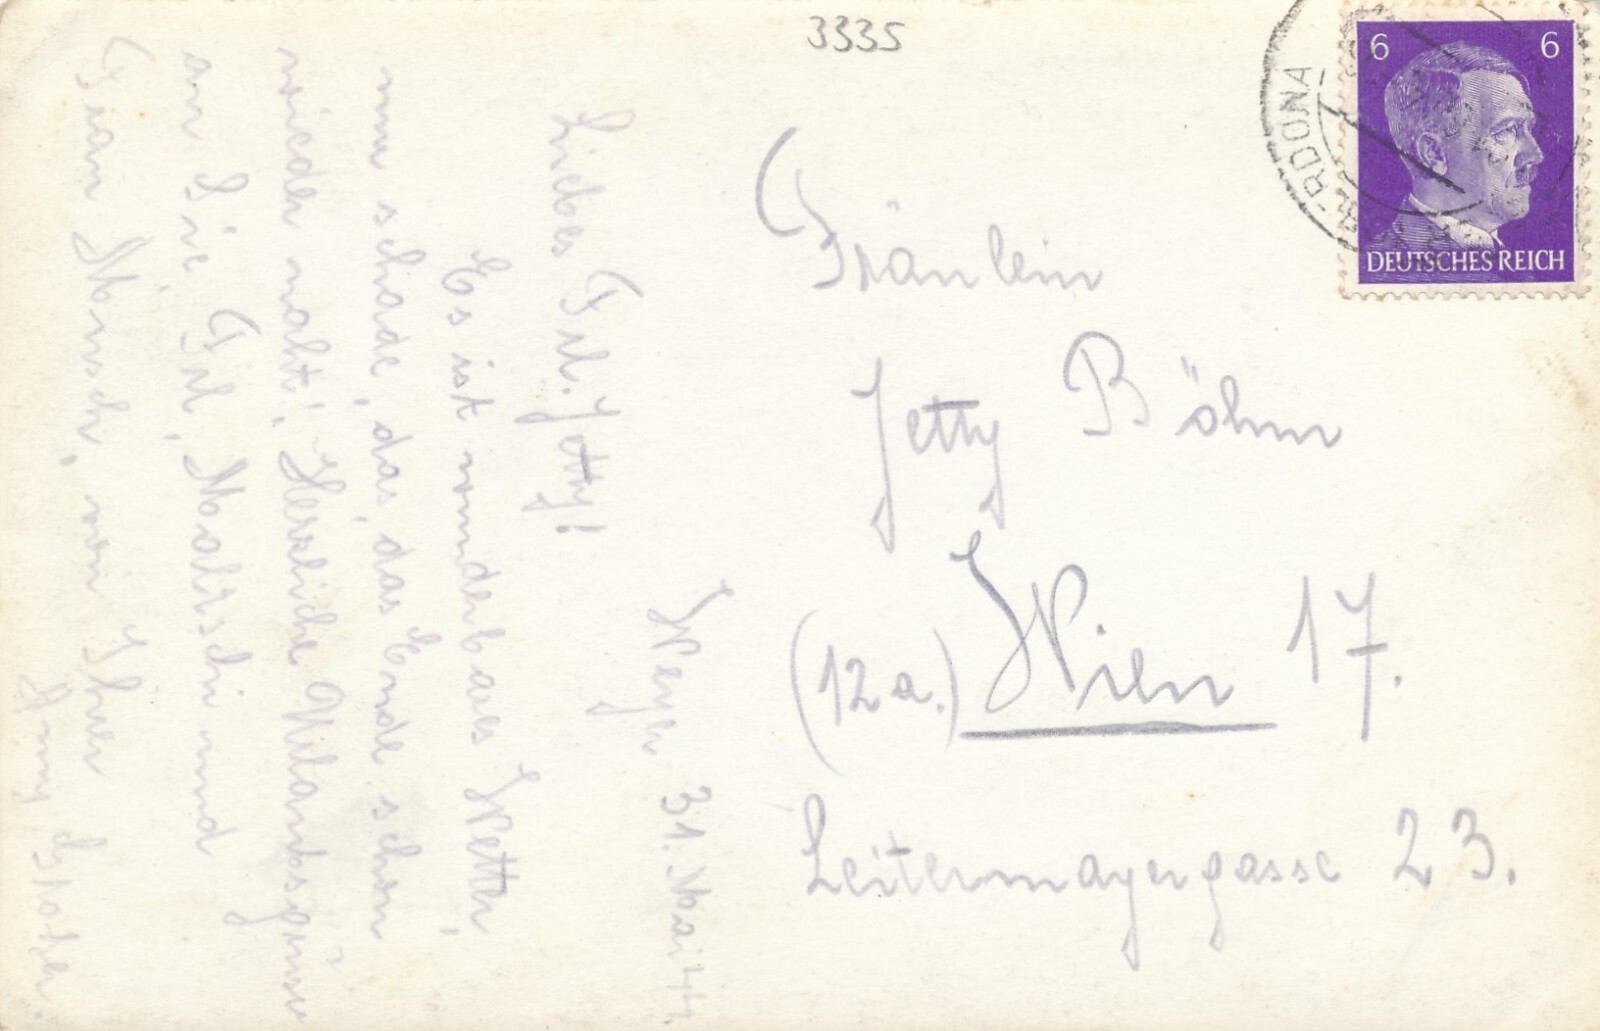 3335
6 6
DEUTSCHES REICH
RDONA
Fräulein
Jetty Böhm
(12a.) Wien 17.
Leitermayergasse 23.
Weyer 31. Mai 44.
Liebes Frl. Jetty!
Es ist wunderbares Wetter,
nur schade, das, das Ende schon
wieder naht! Herzliche Urlaubsgrüsse
an Sie, Frl, und
Frau Mensch, von Ihrer